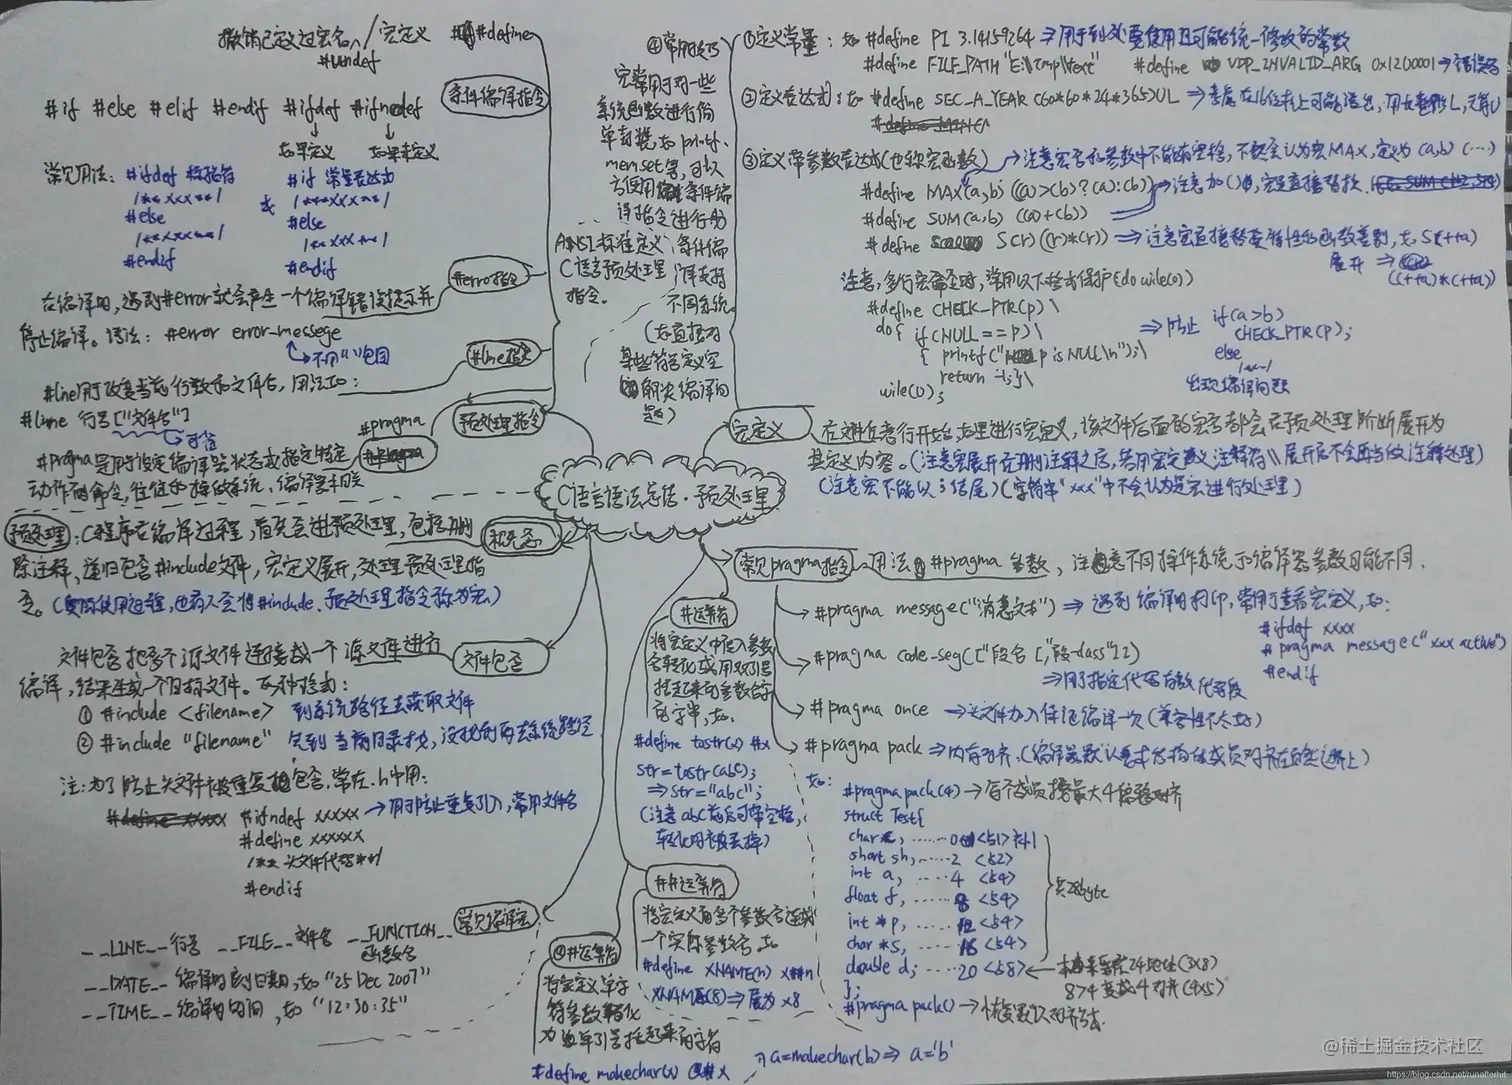 C语言语法总结·预处理
撤销已定义过宏名 / 宏定义 #define
#undef
条件编译指令
#if #else #elif #endif #ifdef #ifnedef
如果定义 如果未定义
常见用法: #ifdef 标指符
/** xxx **/
#else
/** xxx **/
#endif
或
#if 常量表达式
/** xxx **/
#else
/** xxx **/
#endif
#erro指令
在编译时,遇到#error就会产生一个编译错误提示并
停止编译。语法: #error error-messege
不用" "包围
#line指令
#line用于改变当前行数和文件名,用法如:
#line 行号["文件名"]
可省
#pragma
#pragma是用于设定编译器状态或指定特定
动作的命令,往往和操作系统、编译器相关
预处理指令
ANSI标准定义
C语言预处理
指令。
④常用技巧
宏常用于对一些
系统函数进行简
单封装,如printf、
memset等,可以
方便用 条件编
译指令进行
条件编
译支持
不同系统
(如直接对
某些符号定义空
解决编译问
题)
①定义常量: 如 #define PI 3.14159264 ⇒用于到处要使用且可能统一修改的常数
#define FILE_PATH "E:\Tmp\text" #define VDP_INVALID_ARG 0x1200001 ⇒错误码
②定义表达式: 如 #define SEC_A_YEAR (60*60*24*365)UL ⇒考虑在16位机上可能溢出,用长整形L,无符U
③定义带参数表达式(也称宏函数) 注意宏名和参数中不能有空格,不然会认为宏MAX,定义为(a,b)(…)
#define MAX(a,b) ((a)>(b)?(a):(b)) 注意加()号,宏是直接替换.
#define SUM(a,b) ((a)+(b))
#define S(r) ((r)*(r)) ⇒注意宏直接替换特性的函数差别,如S(++a)
展开 ⇒ ((++a)*(++a))
注意,多行宏命令时,常用以下格式保护(do wile(0))
#define CHECK_PTR(p)\
do{ if(NULL==p)\
{ printf("p is NULL\n");\
return -1;}\
wile(0);
⇒防止 if(a>b)
CHECK_PTR(p);
else
/**~/
出现编译问题
宏定义
在文件任意行开始,如里进行宏定义,该文件后面的宏名都会在预处理阶断展开为
其定义内容。(注意宏展开在删注释之后,若用宏定义注释符\\展开后不会再当做注释处理)
(注意宏不能以;结尾)(字符串"xxx"中不会认为是宏进行处理)
概念
预处理:C程序在编译过程,首先会进预处理,包括删
除注释,递归包含#include文件,宏定义展开,处理预处理指
令。(实际使用过程,也有人会将#include、预处理指令称为宏)
文件包含
文件包含把多个源文件连接成一个源文库进行
编译,结果生成一个目标文件。两种格式:
① #include <filename> 到系统路径去获取文件
② #include "filename" 先到当前目录找,没找到再去系统路径
注:为了防止头文件被重复包含,常在.h中用:
#define xxxxx #ifndef xxxxx →用于防止重复引入,常用文件名
#define xxxxxx
/** 头文件代码 **/
#endif
常见编译宏
__LINE__行号 __FILE__文件名 __FUNCTION__
函数名
__DATE__编译时刻日期,如"25 Dec 2007"
__TIME__编译时时间,如"12:30:35"
#运算符
将宏定义中传入参数
名转化成用双引号
括起来的参数名字
的字串,如.
#define tostr(x) #x
str=tostr(abc);
⇒str="abc";
(注意abc前后可带空格,
转化时被丢掉)
##运算符
将宏定义的多个参数名连成
一个实际参数名,如
#define XNAME(n) x##n
XNAME(8)⇒展为 x8
@#运算符
将宏定义单字
符参数转化
为单引号括起来的字符
#define makechar(x) @#x
a=makechar(b)⇒ a='b'
常见pragma指令 用法: #pragma 参数,注意不同操作系统和编译器参数可能不同.
#pragma message("消息文本") ⇒ 遇到编译时打印,常用于查看宏定义,如:
#ifdef xxxx
#pragma message("xxx active")
#endif
#pragma code-seg(["段名"[,"段-class"]])
⇒用于指定代码函数代码段
#pragma once →头文件加入保证编译一次(兼容性不太好)
#pragma pack ⇒内存对齐.(编译器默认要求结构体成员对齐在自然边界上)
如: #pragma pack(4) →每个成员按最大4偏移对齐
struct Test{
char c, ......0 <51>补1
short sh,......2 <52>
int a, ......4 <54>
float f, ......8 <54>
int *p, ......12 <54>
char *s, ......16 <54>
double d; ....20 <58>
};
共28byte
本来要在24地址(3×8)
8>4变成4对齐(4×5)
#pragma pack() →恢复默认对齐方式.
@稀土掘金技术社区
https://blog.csdn.net/runafterhit